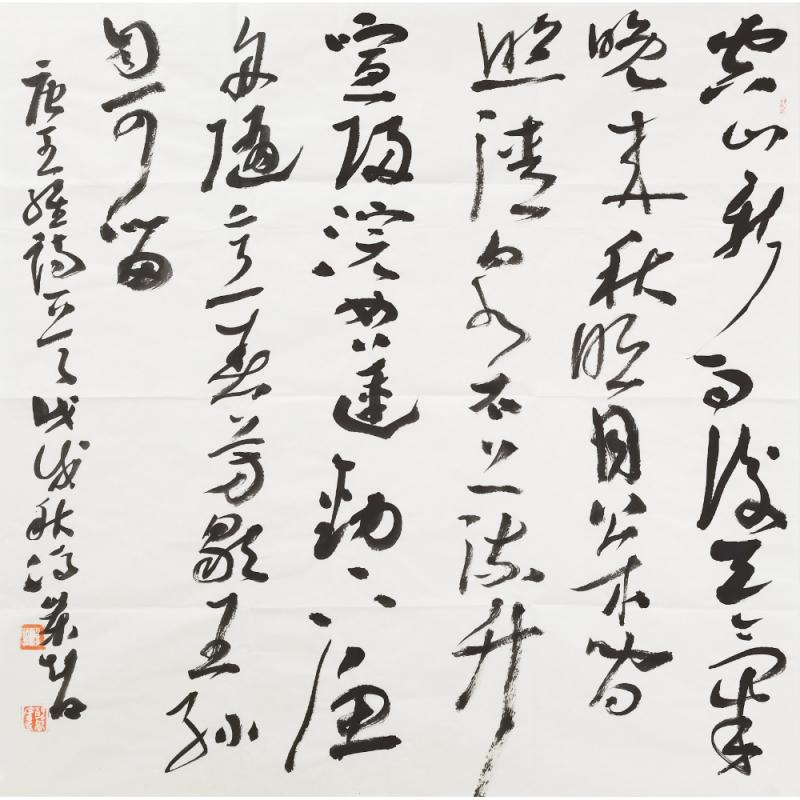 空山新雨後天氣
晚来秋明月松間
照清泉石上流竹
喧歸浣女蓮動下漁
舟隨意春芳歇王孫
自可留
唐王維詩一首戊戌秋